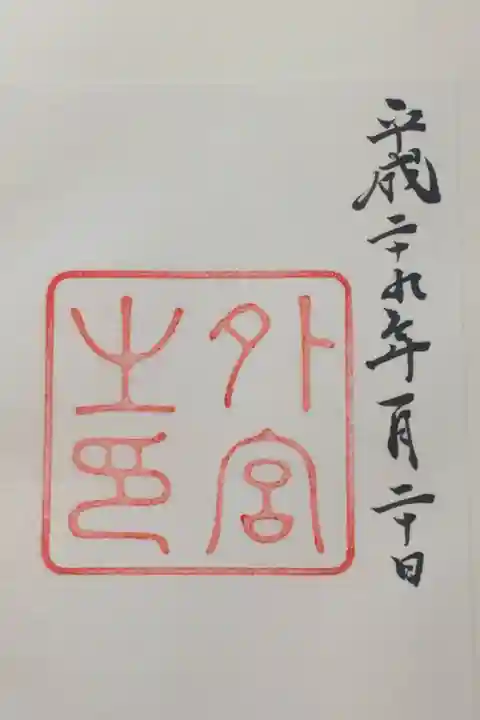 平成二十九年一月二十日
外宮
之印